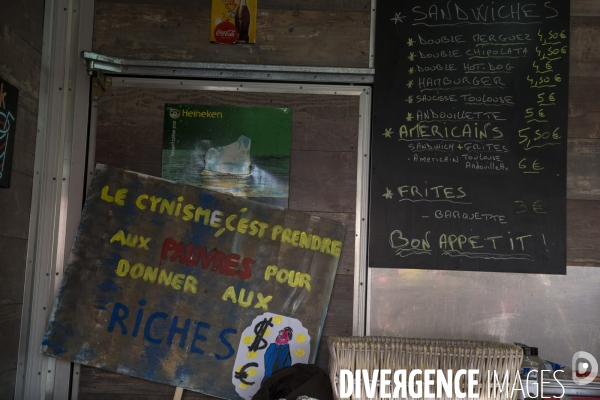 Coca-Cola
Heineken
LE CYNISME, C'EST PRENDRE
AUX PAUVRES POUR
DONNER AUX
RICHES
$
€
* SANDWICHES
* DOUBLE MERGUEZ 4,50€
* DOUBLE CHIPOLATA 4,50€
* DOUBLE HOT-DOG 4€
* HAMBURGER 4,50€
* SAUCISSE TOULOUSE 5€
* ANDOUILLETTE 5€
* AMERICAINS 5,50€
SANDWICH + FRITES
- AMERICAIN TOULOUSE 6€
ANDOUILLETTE
* FRITES
- BARQUETTE 3€
BON APPETIT !
DIVERGENCE IMAGES